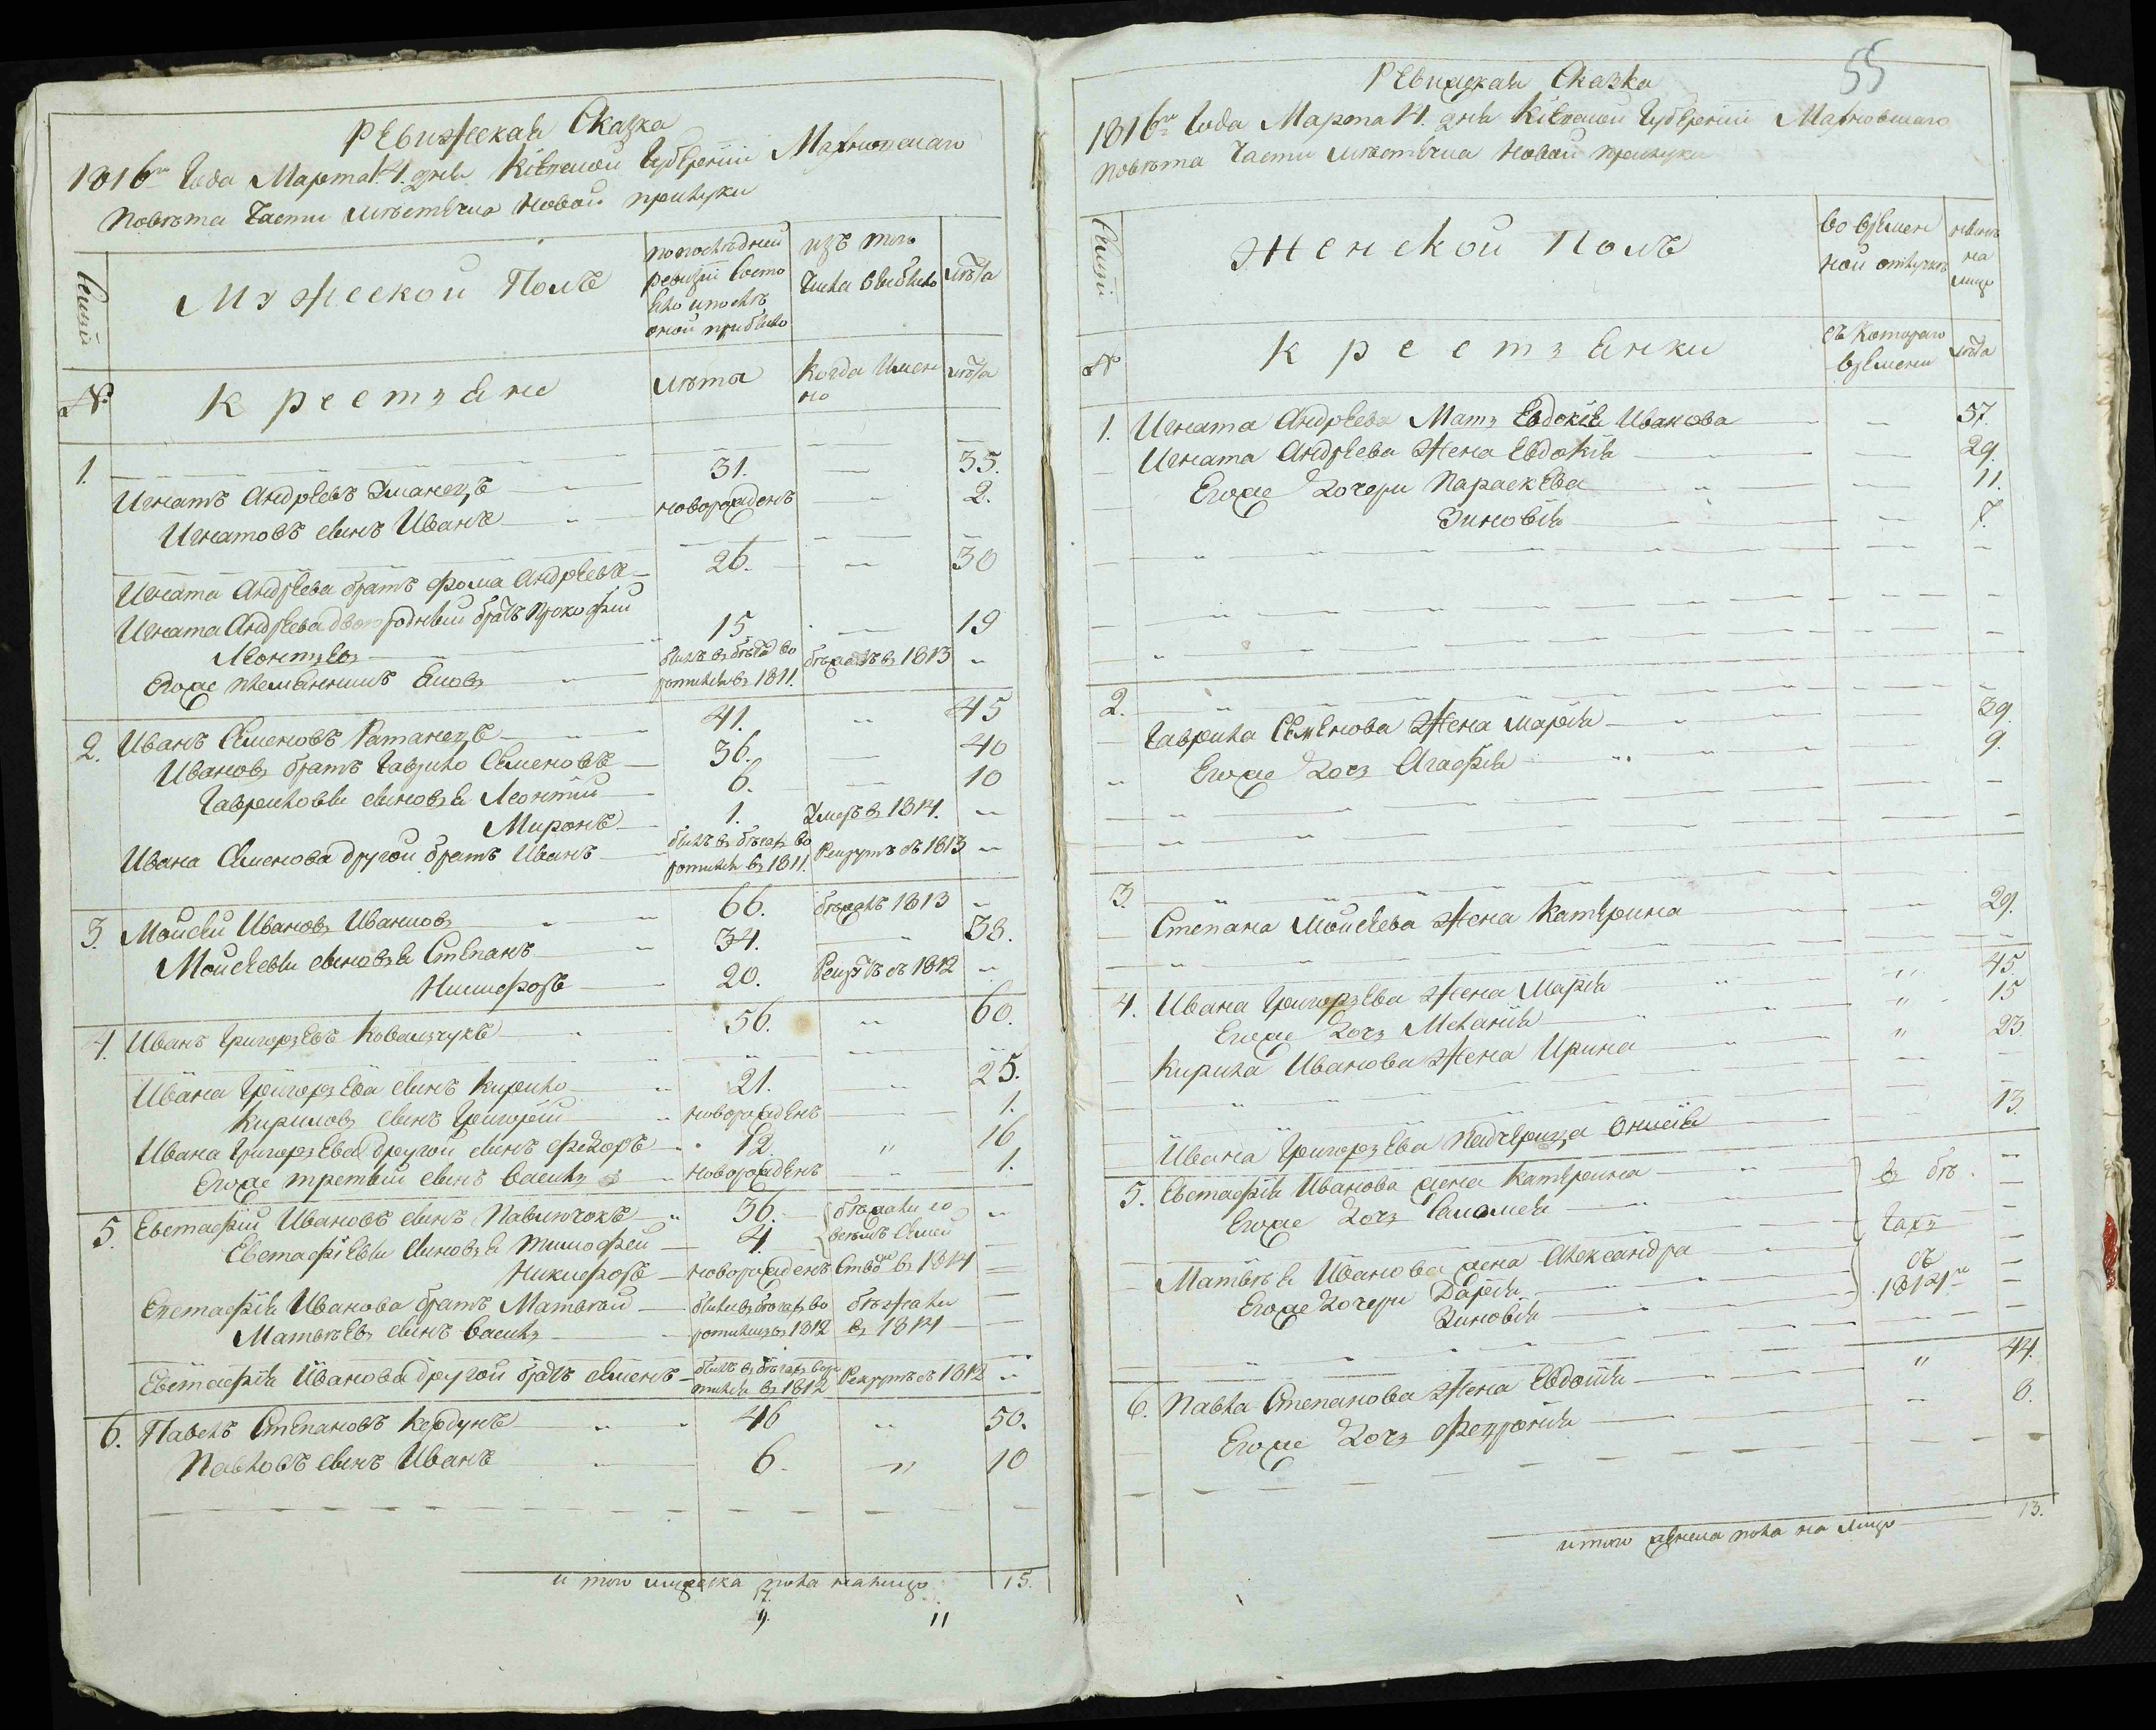 Ревижская Сказка
1816го Года Марта 14. дня Кіевской Губерніи Махновскаго
Повѣта Части мѣстечка Новой прилуки
Семьи
Мужеской Полъ
по последней
ревизіи состо
яло и послѣ
оной прибыло
изъ того
числа выбыло
лѣта
№
крестьяне
лѣта
Когда Имен
но
лѣта
1.
Игнатъ Андреевъ 31. 35.
Игнатовъ сынъ Иванъ новорожденъ 2.
Игната Андреева братъ Фома Андреевъ 26. 30
Игната Андреева двоюродный братъ Прокофій 15 19
Леонтьевъ
Егоже племянникъ былъ въ бегахъ во бежалъ въ 1813
ротился въ 1811.
2. Иванъ Семеновъ 41. 45
Ивановъ братъ Гаврило Семеновъ 36. 40
Гавриловы сыновья Леонтій 6. 10
Миронъ 1. Умеръ въ 1814.
Ивана Семенова другой братъ Иванъ былъ въ бегахъ во Рекрутъ съ 1813
ротился въ 1811.
3. Мойсей Ивановъ 66. бежалъ 1813
Мойсеевы сыновья Степанъ 34. 38.
Никифоръ 20. Рекрутъ съ 1812
4. Иванъ Григорьевъ Ковальчукъ 56. 60.
Ивана Григорьева сынъ Кирило 21. 25.
Кириловъ сынъ Григорій новорожденъ 1.
Ивана Григорьева другой сынъ Федоръ 12. 16
Егоже третьий сынъ Василь новорожденъ 1.
5. Евстафій Ивановъ сынъ 36. бежали со
Евстафіевы сыновья Тимофей 4. всемъ Семей
Никифоръ новорожденъ ствомъ въ 1814
Евстафія Иванова братъ Матвѣй были въ бегахъ во бежали
Матвѣевъ сынъ Василь ротились въ 1812 въ 1814
Евстафія Иванова другой братъ Семенъ былъ въ бегахъ воро Рекрутъ съ 1812
тился въ 1812
6. Павелъ Степановъ 46 50.
Павловъ сынъ Иванъ 6. 10
и того мужеска пола налицо 15.
17.
9. 11
55
Ревижская Сказка
1816го Года Марта 14. дня Кіевской Губерніи Махновскаго
Повѣта Части мѣстечка Новой прилуки
Семьи
Женской Полъ
Во времен
ной отлучкѣ
нынѣ
на
лицо
№
крестьянки
съ Котораго
времени
лѣта
1. Игната Андреева Мать Евдокія Иванова 57.
Игната Андреева Жена Евдокія 29.
Егоже дочери Параскева 11.
Зиновія 7.
2.
Гаврила Семенова Жена Марія 39.
Егоже дочь Агафія 9.
3.
Степана Мойсеева Жена Катерина 29.
4. Ивана Григорьева Жена Марія 45.
Егоже дочь Меланія 15
Кирила Иванова Жена Ирина 23
Ивана Григорьева Падчерица Онисія 13.
5. Евстафія Иванова жена Катерина въ бѣ
Егоже дочь Саломея
гахъ
Матвѣя Иванова жена Александра съ
Егоже дочери Дарія 1814го
Зиновія
6. Павла Степанова Жена Евдокія 44.
Егоже дочь Февронія 8.
итого женска пола на лицо 13.